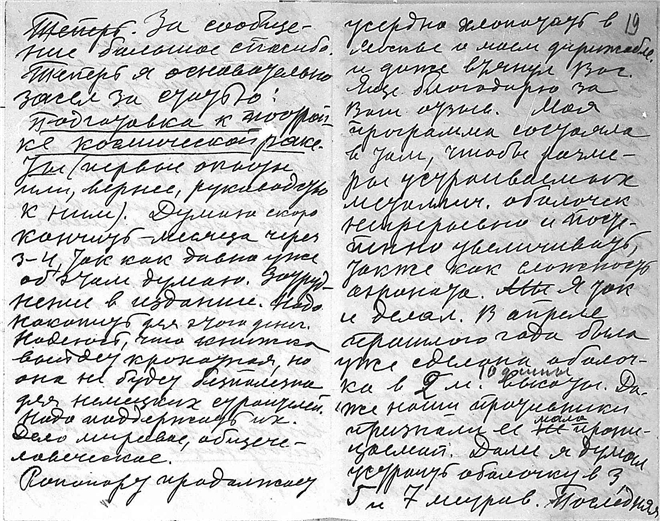 Теперь. За сообще-
ние большое спасибо.
Теперь я основательно
засел за статью:
Подготовка к построй-
ке космической раке-
ты (первые опыты
или, вернее, руководство
к ним). Думаю скоро
кончить – месяца через
3-4, так как давно уже
об этом думаю. Затруд-
нение в издании. Надо
накопить для этого денег.
Надеюсь, что книжка
выйдет крохотная, но
она не будет бесполезна
для немецких строителей.
Надо поддержать их.
Дело мировое, общече-
ловеческое.
продолжает
19
усердно хлопотать в
Москве о моем дирижабле.
и даже втянул Вас.
Еще благодарю за
Ваш отзыв. Моя
программа состояла
в том, чтобы разме-
ры устраиваемых
металлич. оболочек
непрерывно и посте-
пенно увеличивать,
также как сложность
аппарата. Я так
и делал. В апреле
прошлого года была
уже сделана оболоч-
ка в 2 м. высоты. Да-
же наши противники
признали ее мало прони-
цаемой. Далее я думал
устроить оболочку в 3,
5 и 7 метров. Последняя